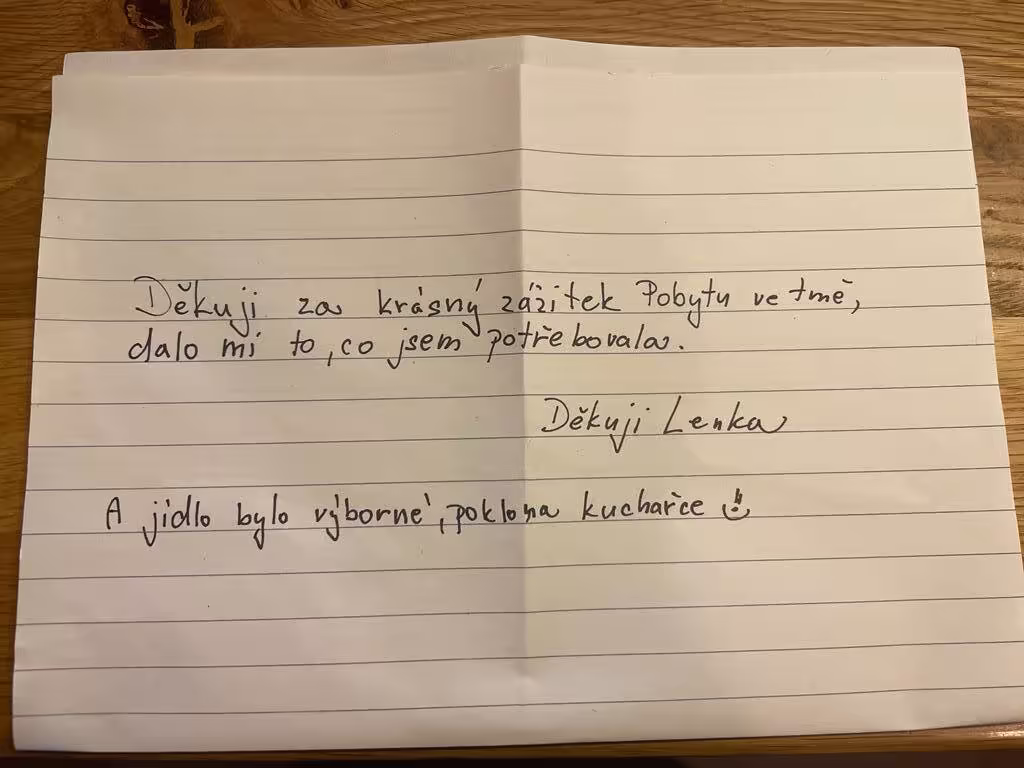 Děkuji za krásný zážitek Pobytu ve tmě,
dalo mi to, co jsem potřebovala.
Děkuji Lenka
A jídlo bylo výborné, poklona kuchařce